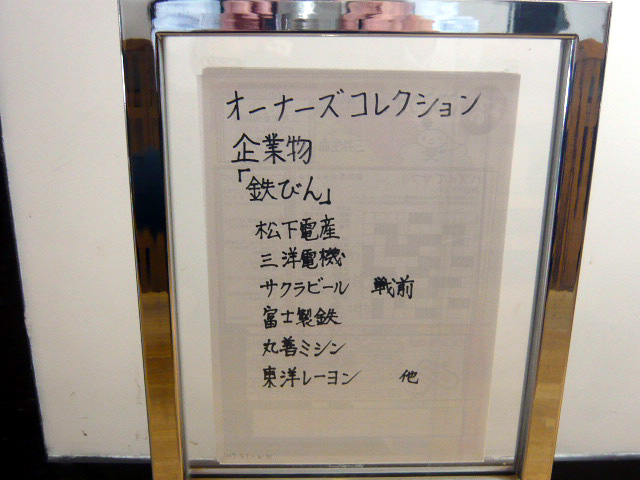 オーナーズコレクション
企業物
「鉄びん」
松下電産
三洋電機
サクラビール 戦前
富士製鉄
丸善ミシン
東洋レーヨン 他